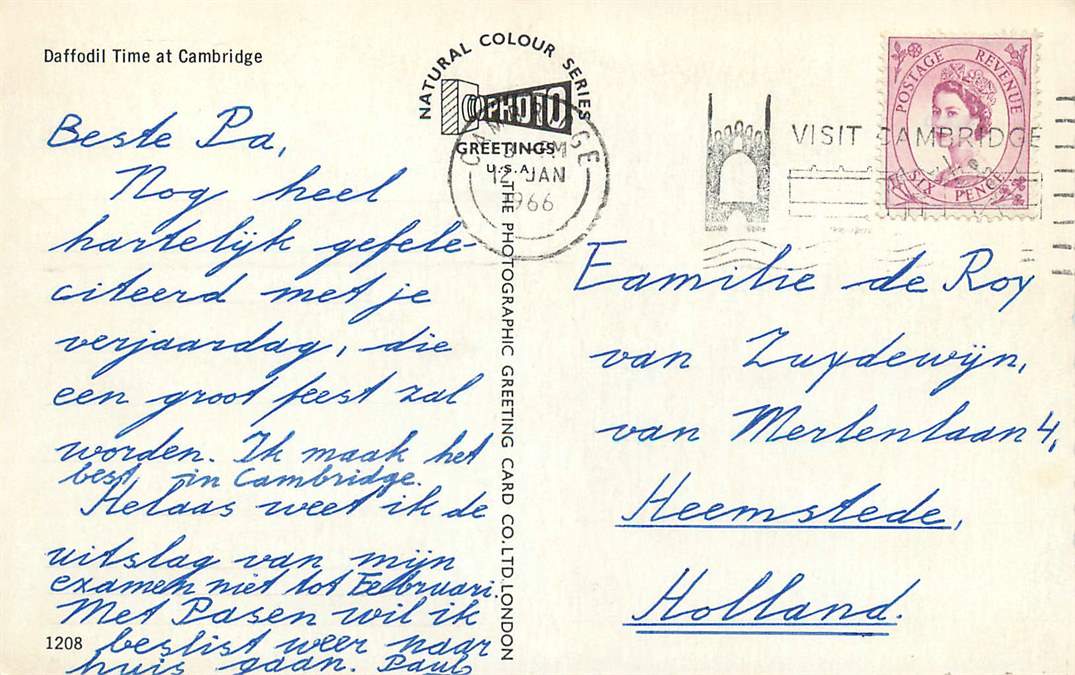 Daffodil Time at Cambridge
Beste Pa,
Nog heel
hartelijk gefele-
citeerd met je
verjaardag, die
een groot feest zal
worden. Ik maak het
best in Cambridge.
Helaas weet ik de
uitslag van mijn
examen niet tot Februari.
Met Pasen wil ik
beslist weer naar
huis gaan. Paul
1208
NATURAL COLOUR SERIES
PHOTO
GREETINGS
U.S.A.
THE PHOTOGRAPHIC GREETING CARD CO., LTD. LONDON
CAMBRIDGE
PM
12 JAN
1966
VISIT CAMBRIDGE
POSTAGE REVENUE
SIX PENCE
Familie de Roy
van Zuydewijn,
van Merlenlaan 4,
Heemstede,
Holland.